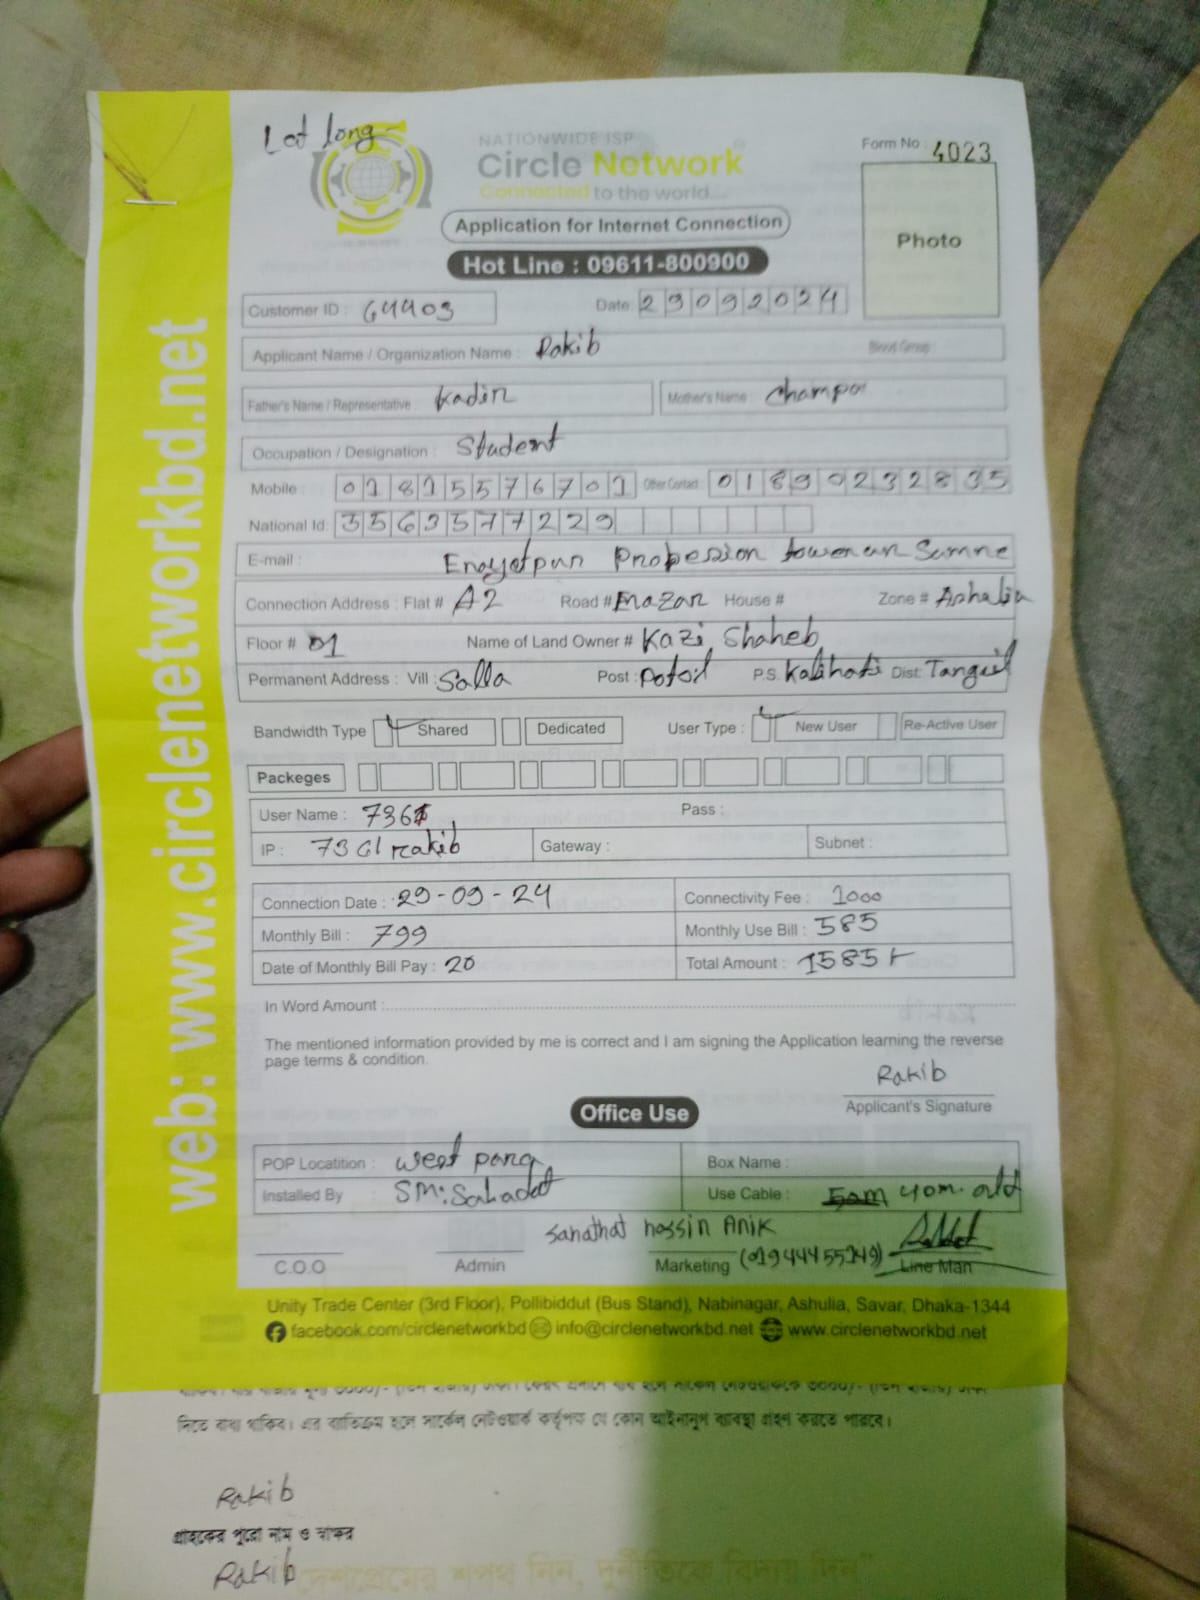 Lat long
NATIONWIDE ISP
Circle Network
Connected to the world...
Form No : 4023
Photo
Application for Internet Connection
Hot Line : 09611-800900
Customer ID : 64403 Date: 29092024
Applicant Name / Organization Name : Rakib Blood Group
Father's Name / Representative : Kadir Mother's Name : Champa
Occupation / Designation : Student
Mobile : 01815576701 Other Contact : 01890232835
National Id: 3563577229
E-mail : Enayetpur towerar Samne
Connection Address : Flat # A2 Road # Mazar House # Zone # Ashalia
Floor # 01 Name of Land Owner # Kazi Shaheb
Permanent Address : Vill : Salla Post : Potoil P.S. Kalihati Dist: Tangail
Bandwidth Type Shared Dedicated User Type : New User Re-Active User
Packeges
User Name : 7361 Pass :
IP : 7361 rakib Gateway : Subnet :
Connection Date : 29-09-24 Connectivity Fee : 1000
Monthly Bill : 799 Monthly Use Bill : 585
Date of Monthly Bill Pay : 20 Total Amount : 1585
In Word Amount :
The mentioned information provided by me is correct and I am signing the Application learning the reverse
page terms & condition.
Rakib
Applicant's Signature
Office Use
POP Locatition : West para Box Name :
Installed By : SM: Sahadat Use Cable : 40m. old
Sanathat hossin Anik
C.O.O Admin Marketing (01944455249) Line Man
Unity Trade Center (3rd Floor), Pollibiddut (Bus Stand), Nabinagar, Ashulia, Savar, Dhaka-1344
facebook.com/circlenetworkbd info@circlenetworkbd.net www.circlenetworkbd.net
web: www.circlenetworkbd.net
দিতে বাধ্য থাকিব। এর ব্যতিক্রম হলে সার্কেল নেটওয়ার্ক কর্তৃপক্ষ যে কোন আইনানুগ ব্যবস্থা গ্রহণ করতে পারবে।
Rakib
গ্রাহকের পুরো নাম ও স্বাক্ষর
Rakib
দেশপ্রেমের শপথ নিন, দুর্নীতিকে বিদায় দিন"